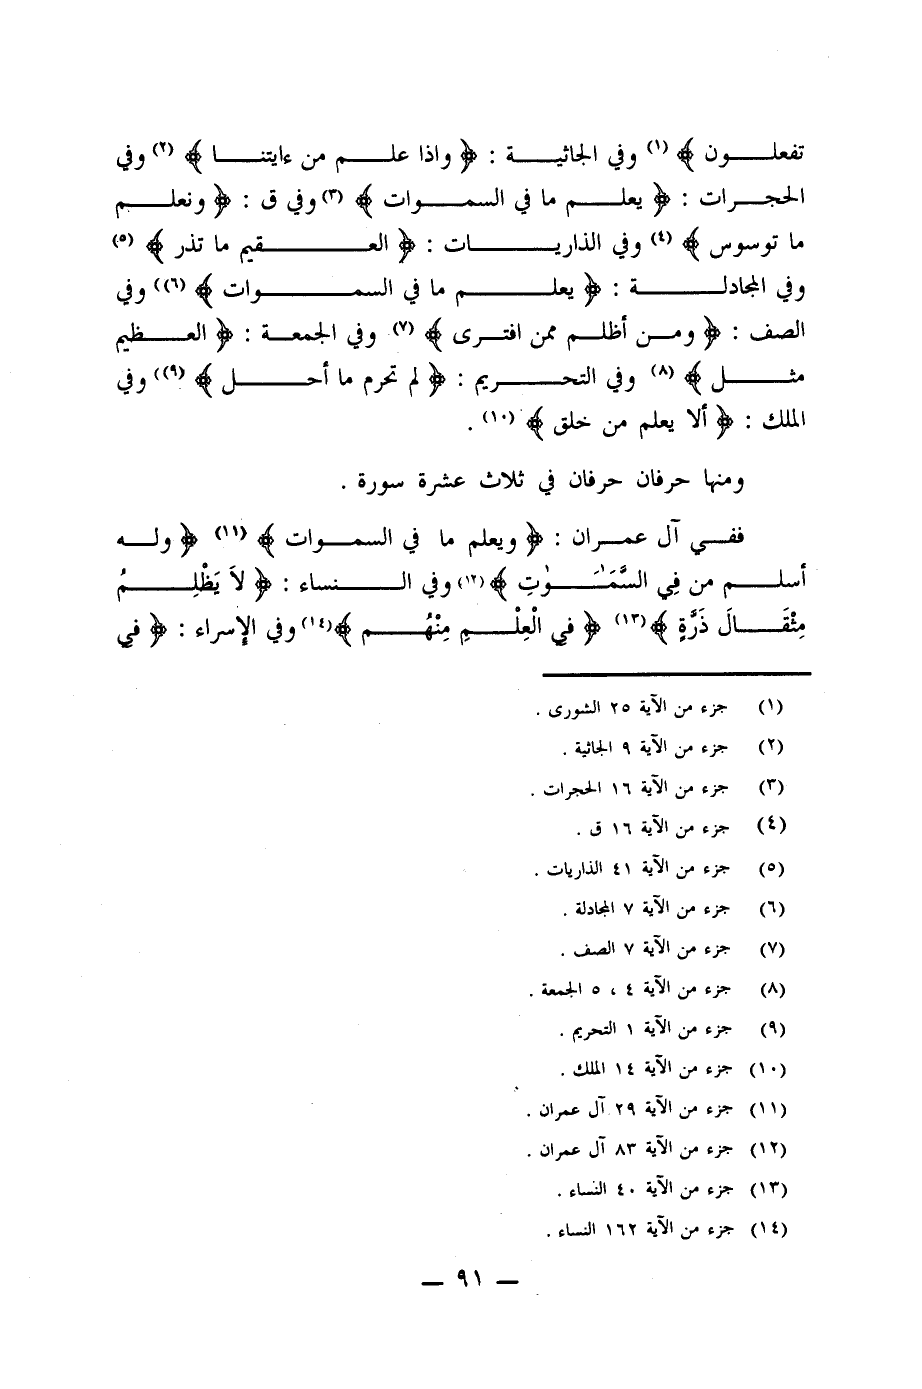 تفعلون ﴾ (١) وفي الجاثية : ﴿ واذا علم من ءايتنا ﴾ (٢) وفي
الحجرات : ﴿ يعلم ما في السموات ﴾ (٣) وفي ق : ﴿ ونعلم
ما توسوس ﴾ (٤) وفي الذاريات : ﴿ العقيم ما تذر ﴾ (٥)
وفي المجادلة : ﴿ يعلم ما في السموات ﴾ (٦)) وفي
الصف : ﴿ ومن أظلم ممن افترى ﴾ (٧) وفي الجمعة : ﴿ العظيم
مثل ﴾ (٨) وفي التحريم : ﴿ لم تحرم ما أحل ﴾ (٩)) وفي
الملك : ﴿ ألا يعلم من خلق ﴾ (١٠) .
ومنها حرفان حرفان في ثلاث عشرة سورة .
ففي آل عمران : ﴿ ويعلم ما في السموات ﴾ (١١) ﴿ وله
أسلم من فِي السَّمَـٰوَٰتِ ﴾ (١٢) وفي النساء : ﴿ لاَ يَظْلِمُ
مِثْقَالَ ذَرَّةٍ ﴾ (١٣) ﴿ فِي الْعِلْمِ مِنْهُم ﴾ (١٤) وفي الإسراء : ﴿ فِي
(١) جزء من الآية ٢٥ الشورى .
(٢) جزء من الآية ٩ الجاثية .
(٣) جزء من الآية ١٦ الحجرات .
(٤) جزء من الآية ١٦ ق .
(٥) جزء من الآية ٤١ الذاريات .
(٦) جزء من الآية ٧ المجادلة .
(٧) جزء من الآية ٧ الصف .
(٨) جزء من الآية ٤ ، ٥ الجمعة .
(٩) جزء من الآية ١ التحريم .
(١٠) جزء من الآية ١٤ الملك .
(١١) جزء من الآية ٢٩ آل عمران .
(١٢) جزء من الآية ٨٣ آل عمران .
(١٣) جزء من الآية ٤٠ النساء .
(١٤) جزء من الآية ١٦٢ النساء .
— ٩١ —